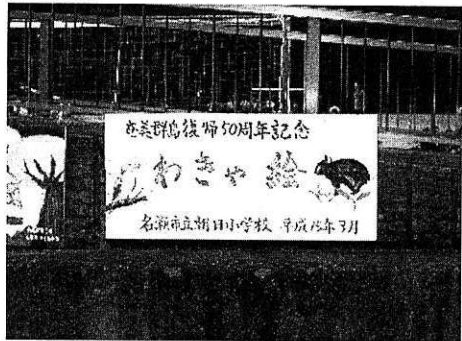 奄美群島復帰50周年記念
わきゃ絵
名瀬市立朝日小学校 平成15年3月